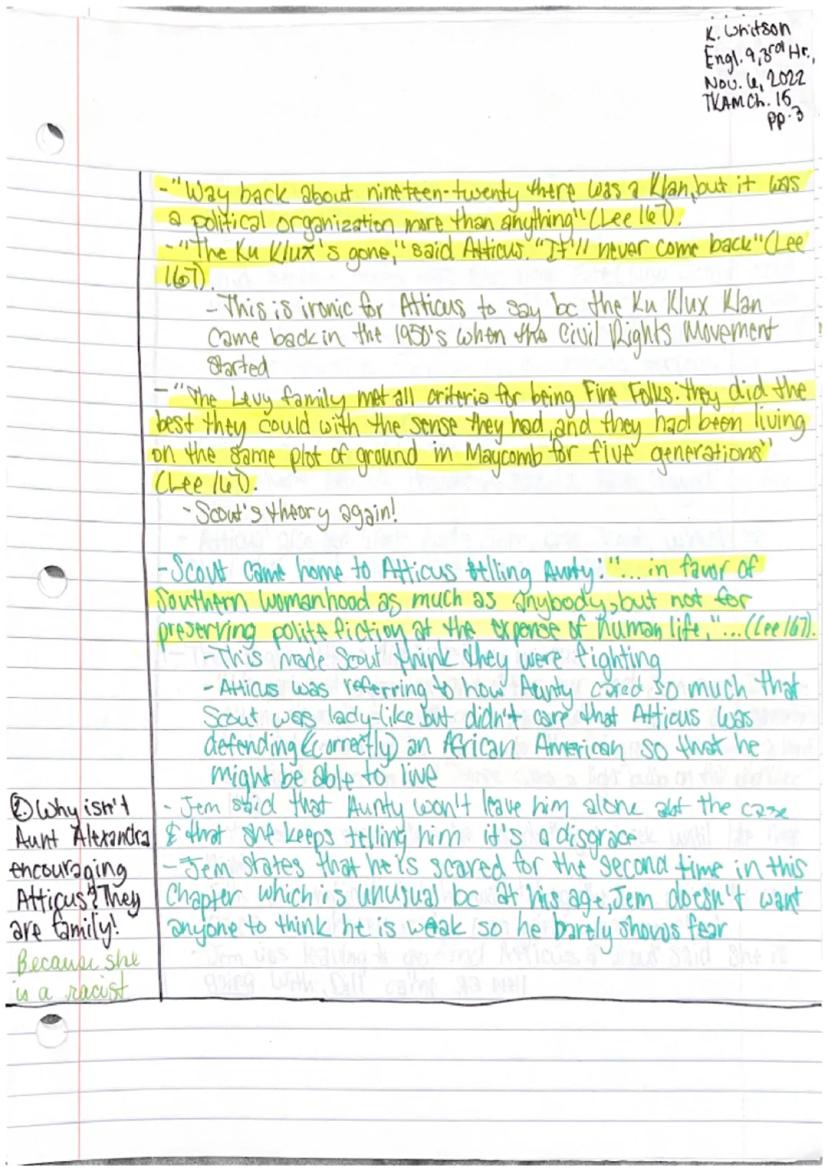 K. Whitson
Engl. 9, 3rd Hr.,
Nov. 6, 2022
TKAM Ch. 15
pp. 3
- "Way back about nineteen-twenty there was a Klan, but it was
a political organization more than anything" (Lee 167).
- "The Ku Klux's gone," said Atticus. "It'll never come back" (Lee
167).
- This is ironic for Atticus to say bc the Ku Klux Klan
came back in the 1950's when the Civil Rights Movement
started
- "The Levy family met all criteria for being Fine Folks: they did the
best they could with the sense they had, and they had been living
on the same plot of ground in Maycomb for five generations"
(Lee 167).
- Scout's theory again!
- Scout came home to Atticus telling Aunty: "... in favor of
Southern womanhood as much as anybody, but not for
preserving polite fiction at the expense of human life," ... (Lee 167).
- This made Scout think they were fighting
- Atticus was referring to how Aunty cared so much that
Scout was lady-like but didn't care that Atticus was
defending (correctly) an African American so that he
might be able to live
② Why isn't
Aunt Alexandra
encouraging
Atticus? They
are family!
Because she
is a racist
- Jem said that Aunty won't leave him alone abt the case
& that she keeps telling him it's a disgrace
- Jem states that he is scared for the second time in this
Chapter which is unusual bc at his age, Jem doesn't want
anyone to think he is weak so he barely shows fear